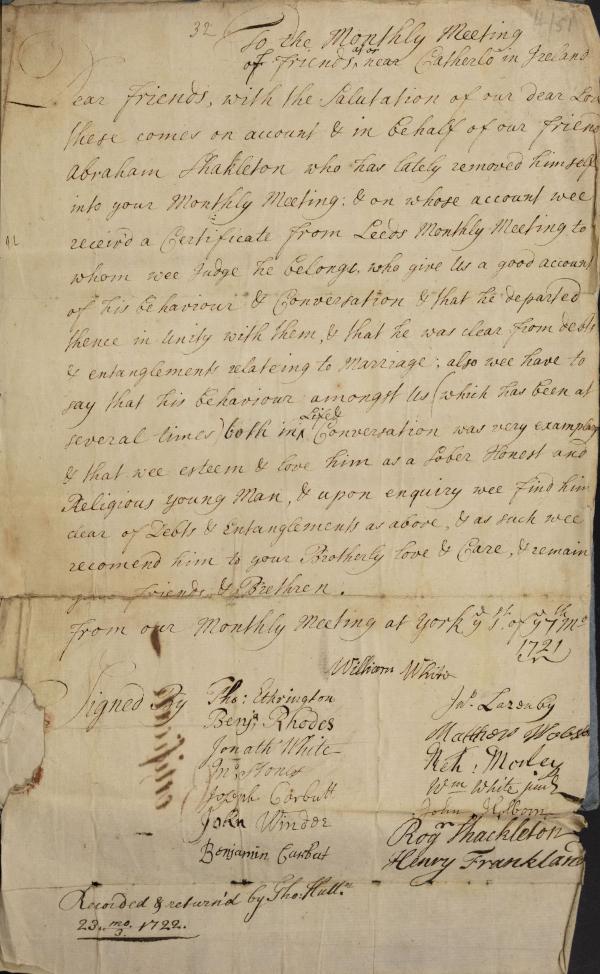 32
To the Monthly Meeting
of Friends at or near Catherlo in Ireland
ear Friends, with the Salutation of our dear Lov
these comes on account & in behalf of our friend
Abraham Shakleton who has lately removed himself
into your Monthly Meeting: & on whose account wee
receiv'd a Certificate from Leeds Monthly Meeting to
whom wee Judge he belongs, who give us a good account
of his behaviour & Conversation & that he departed
thence in Unity with them, & that he was clear from debts
& entanglements relateing to Marriage; also wee have to
say that his behaviour amongst us (which has been at
several times) both in Life & Conversation was very examplary
& that wee esteem & love him as a Sober Honest and
Religious young Man, & upon enquiry wee find him
clear of Debts & Entanglements as above, & as such wee
recomend him to your Brotherly love & Care, & remain
your friends & Brethren.
From our Monthly Meeting at York ye 1st of ye 7th Mo
1721
William White
Signed By Tho: Ethrington
Benj: Rhodes
Jonath White
Jno Stones
Joseph Corbutt
John Winder
Benjamin Corbut
Jno Lazenby
Matthew Webst
Neh: Morley
Wm White junr
John Hilborn
Rogr Shackleton
Henry Frankland
Recorded & return'd by Tho: Hutt
23 mo 3 1722.